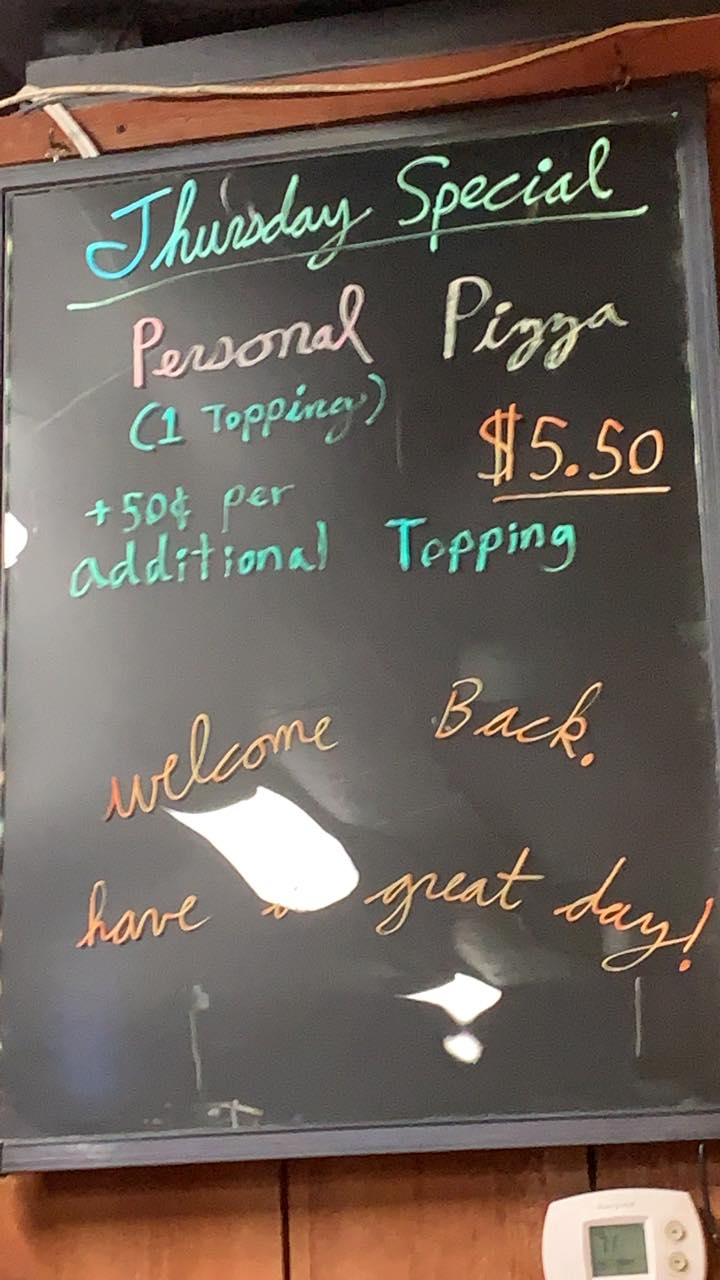 Thursday Special
Personal Pizza
(1 Topping)
$5.50
+50¢ per
additional Topping
welcome Back.
have a great day!